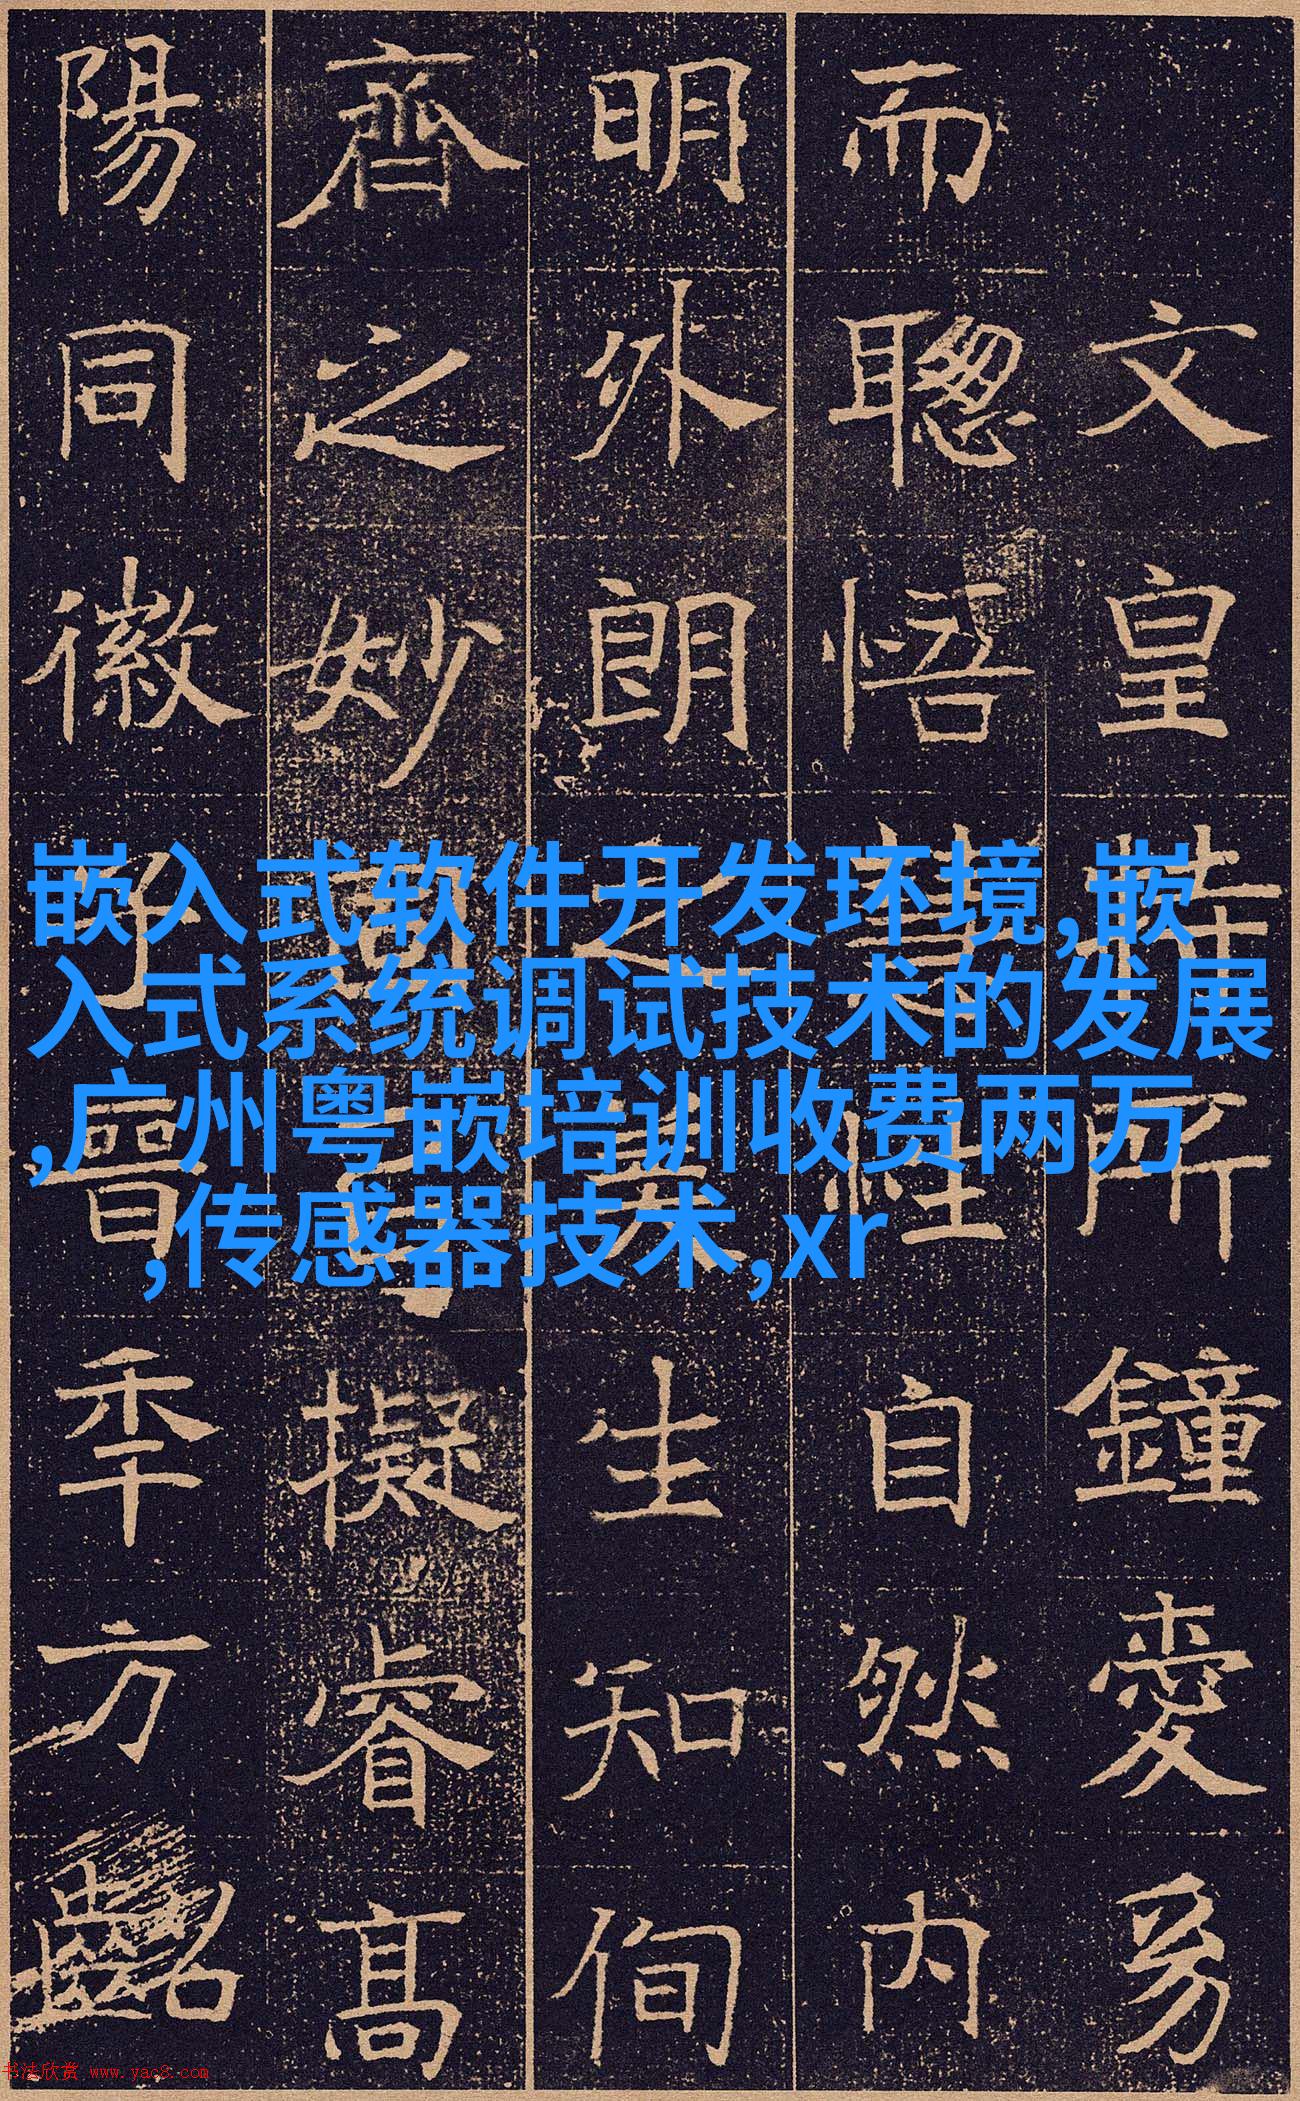 文皇特所鐘愛
而聰悟性自然内
明外朗之生知徇
齊之妙擬睿高
陽同徽子晉季方齠
嵌入式软件开发环境,嵌
入式系统调试技术的发展
,广州粤嵌培训收费两万
,传感器技术,xr
书法欣赏 www.yac8.com